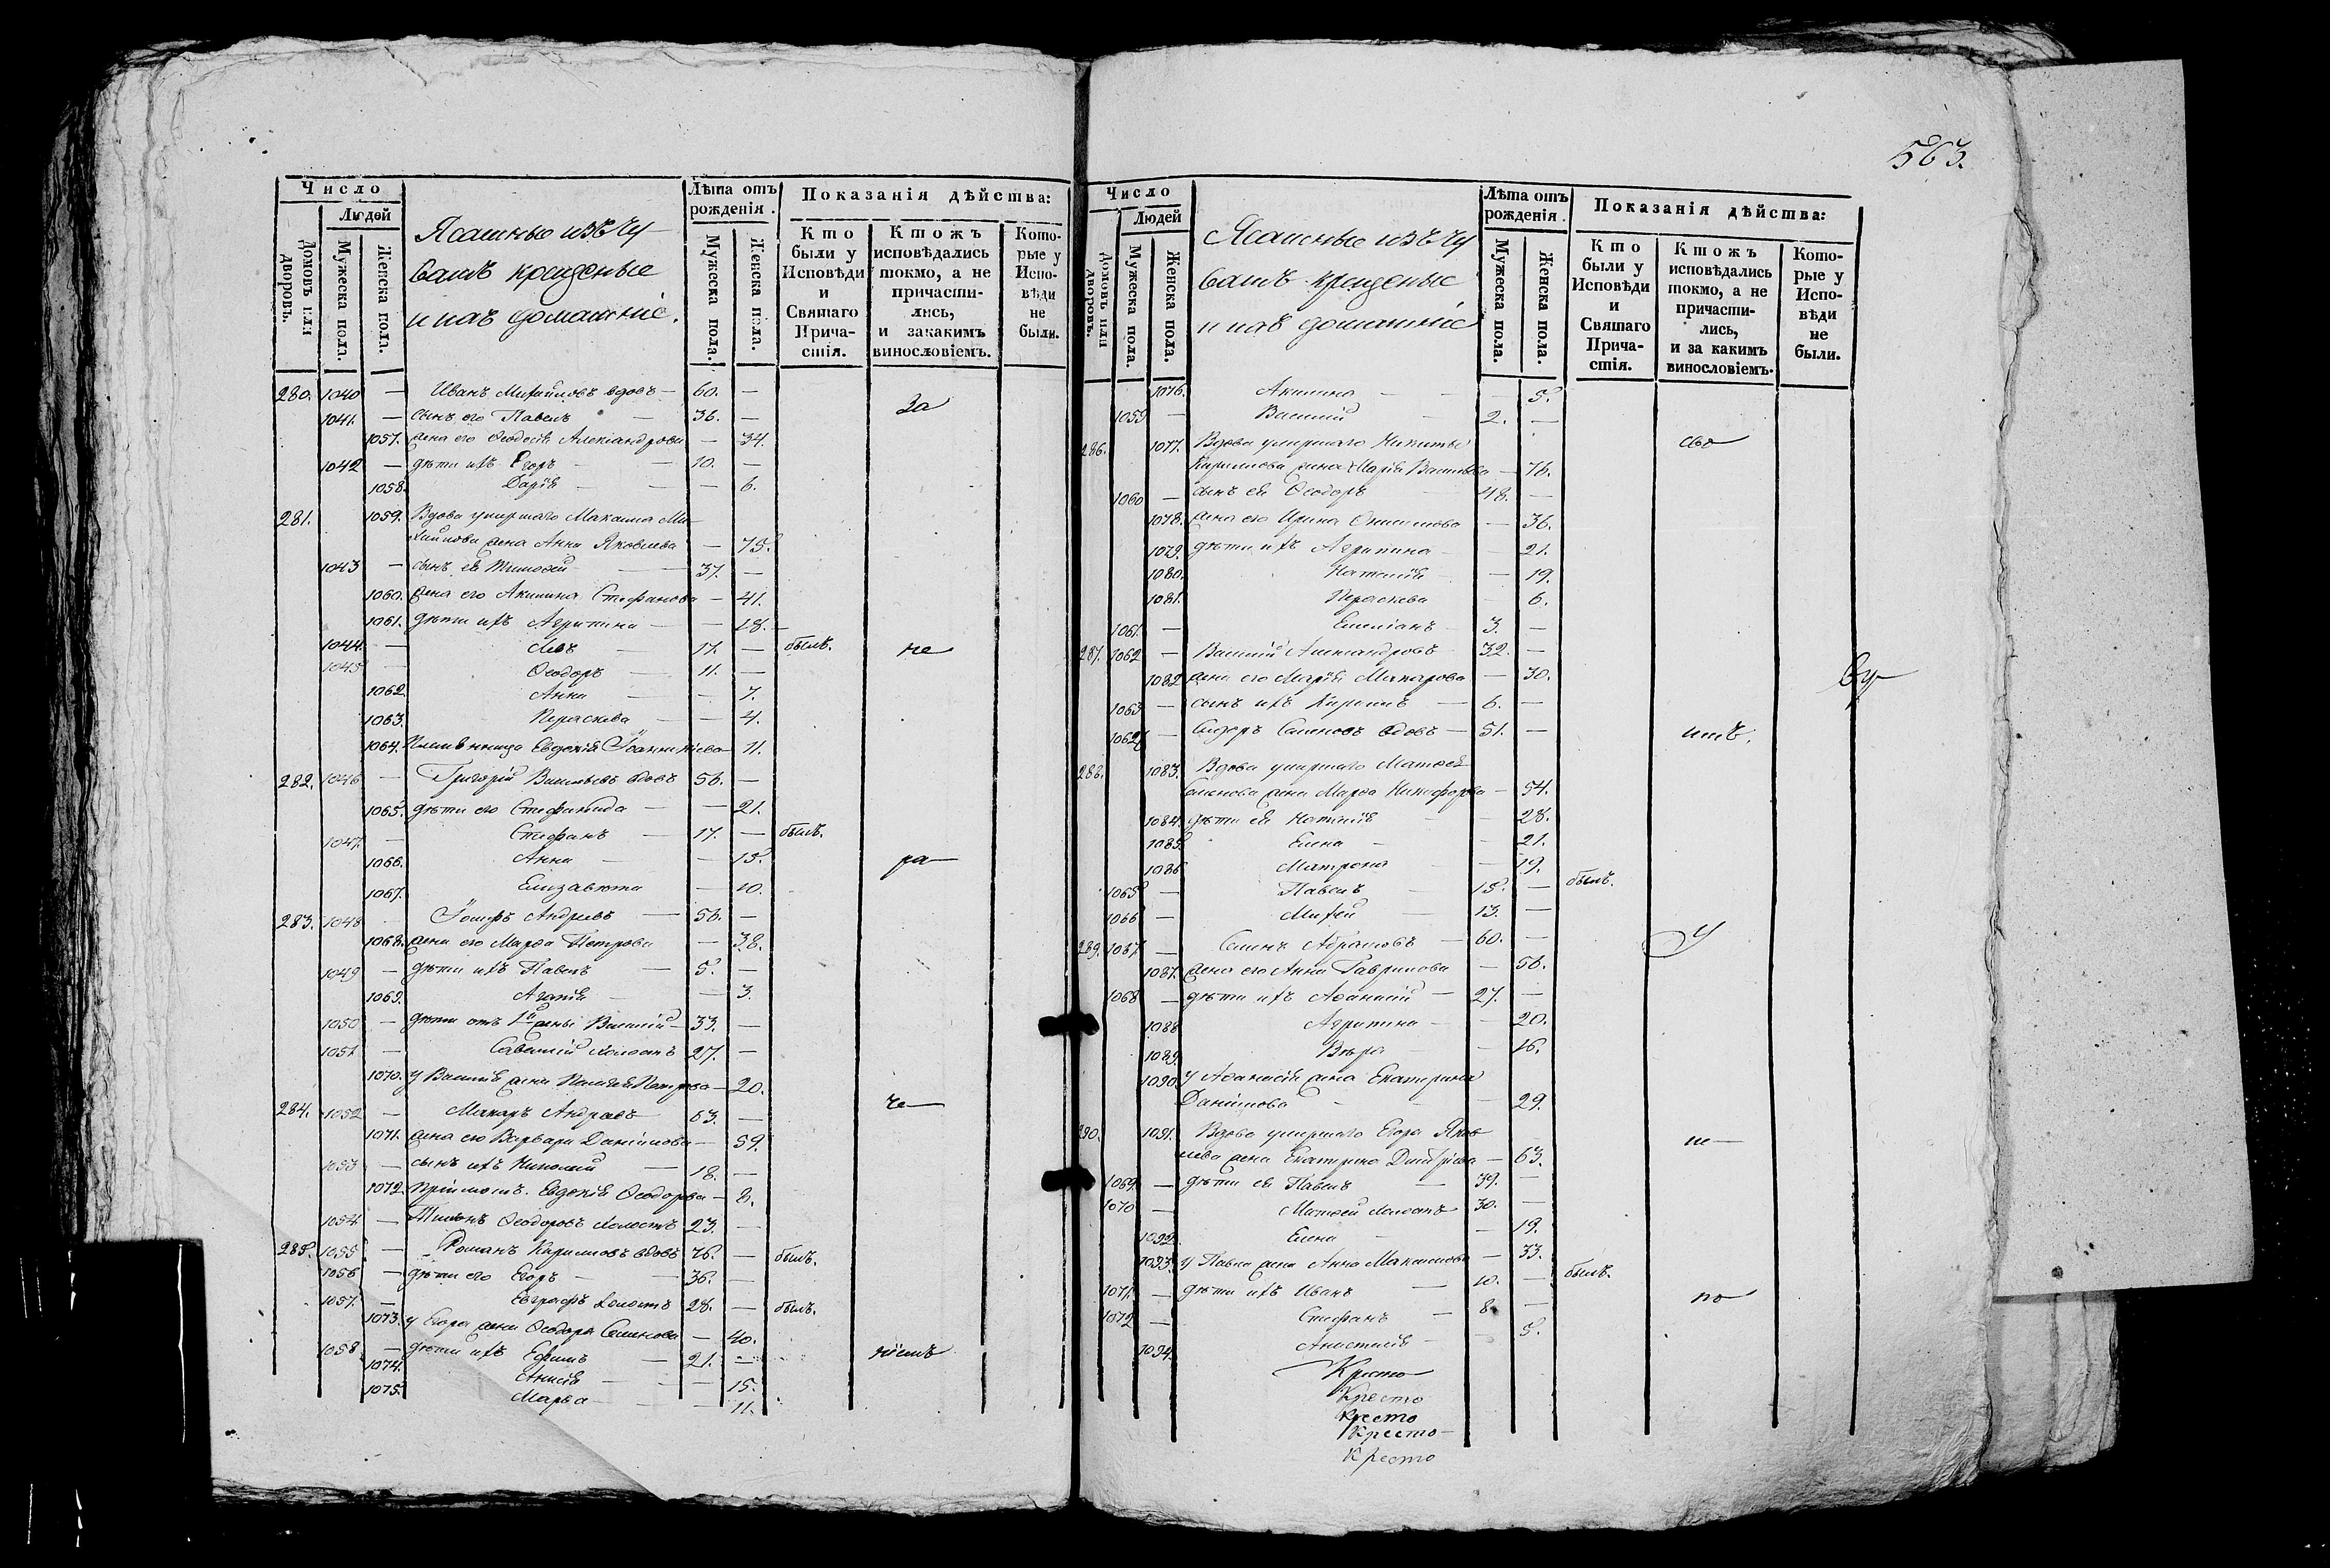 563.
Число
Людей
Домовъ или дворовъ.
Мужеска пола.
Женска пола.
Ясашные изъ чу
вашъ крещеные
и ихъ домашніе.
Лѣта отъ рожденія.
Мужеска пола.
Женска пола.
Показанія дѣйства:
Кто были у Исповѣди и Святаго Прича-стія.
Ктожъ исповѣдались токмо, а не причасти-лись, и закакимъ винословіемъ.
Кото-рые у Испо-вѣди не были.
280. 1040 — Иванъ Михайловъ вдовъ — 60. —
За
1041. — сынъ его Павелъ — 36. —
1057. жена его Ѳеодосія Александрова — 34.
1042 — дѣти ихъ Егоръ — 10. —
1058. Дарія — — 6.
281. 1059. Вдова умершаго Максима Ми-
хайлова жена Анна Яковлева — 75.
1043 — сынъ ея Тимоѳей — 37. —
1060. жена его Акилина Стефанова — 41.
1061. дѣти ихъ Агрипина — — 18.
1044. — Левъ — 17. — былъ.
не
1045 — Ѳеодоръ — 11. —
1062. Анна — — 7.
1063. Параскева — — 4.
1064. Племянница Евдокія 11.
282. 1046 — Григорій Васильевъ вдовъ 56. —
1065. дѣти его Стефанида — — 21.
1047. — Стефанъ — 17. — былъ.
1066. Анна — — 15.
ра
1067. Елизавета — 10.
283. 1048 — Іосифъ Андреевъ — 56. —
1068. жена его Марѳа Петрова — 38.
1049 — дѣти ихъ Павелъ — 5. —
1069. Агафія — — 3.
1050 — дѣти отъ 1й жены Василій — 33. —
1051 — Савелій холостъ 27. —
1070. у Василія жена Пелагея Петрова — 20.
че
284. 1052 — Макаръ Андреевъ 63. —
1071. жена его Варвара Даніилова — 59.
1053 — сынъ ихъ Николай — 18. —
1072. Евдокія Ѳеодорова — 8.
1054 — Ѳеодоровъ холостъ 23. —
285. 1055 — Романъ Кириловъ вдовъ 76. — былъ.
1056 — дѣти его Егоръ — 36. —
1057. — Евграфъ холостъ 28. — былъ.
1073. у Егора жена Ѳеодора Семенова — 40.
1058 — дѣти ихъ Ефимъ — 21. —
ніемъ
1074. Анисія — — 15.
1075. Марѳа — — 11.
Число
Людей
Домовъ или дворовъ.
Мужеска пола.
Женска пола.
Ясашные изъ чу
вашъ крещеные
и ихъ домашніе
Лѣта отъ рожденія.
Мужеска пола.
Женска пола.
Показанія дѣйства:
Кто были у Исповѣди и Святаго Прича-стія.
Ктожъ исповѣдались токмо, а не причасти-лись, и за какимъ винословіемъ.
Кото-рые у Испо-вѣди не были.
1076. Акилина — — 5.
1059 — Василій — 2. —
286. 1077. Вдова умершаго Никиты
сво
Кирилова жена Марія Васильева — 76.
1060 — сынъ ея Ѳеодоръ 48. —
1078. жена его Ирина — 36.
1079. дѣти ихъ Агрипина — — 21.
1080. Наталія — — 19.
1081. Параскева — 6.
1061. — Емеліанъ — 3. —
287. 1062 — Василій Александровъ 32. —
1082 жена его Марія Макарова — 30.
Бу
1063 — сынъ ихъ — 6. —
— Сидоръ Семеновъ вдовъ — 51. —
имъ.
288. 1083. Вдова умершаго Матѳея
Семенова жена Марѳа Никифорова — 54.
1084. дѣти ея Наталія — — 28.
1085. Елена — — 21.
1086 Матрона — 19.
1065 — Павелъ — 15. — былъ.
1066 — Михей — 13. —
289. 1067. — Семенъ Абрамовъ — 60. —
у
1087. жена его Анна Гаврилова — 56.
1068 — дѣти ихъ Аѳанасій — 27. —
1088 Агрипина — — 20.
1089. Вѣра — — 16.
1090. у Аѳанасія жена Екатерина
Даніилова — — 29.
290. 1091. Вдова умершаго Егора Яков
ле
лева жена Екатерина Дмитріева — 63.
1069. — дѣти ея Павелъ — 39. —
1070 — Матѳей холостъ 30. —
1092. Елена — — 19.
1093. у Павла жена Анна Максимова — 33.
1071. — дѣти ихъ Иванъ — 10. — былъ.
по
1072 — Стефанъ — 8. —
1094 Анастасія — — 5.
Кресто
Кресто
Кресто
Кресто-
Кресто